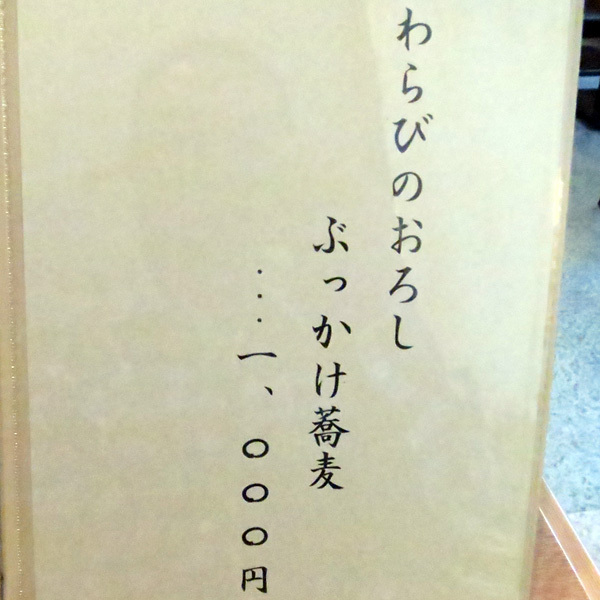 わらびのおろし
ぶっかけ蕎麦
・・・一、〇〇〇円